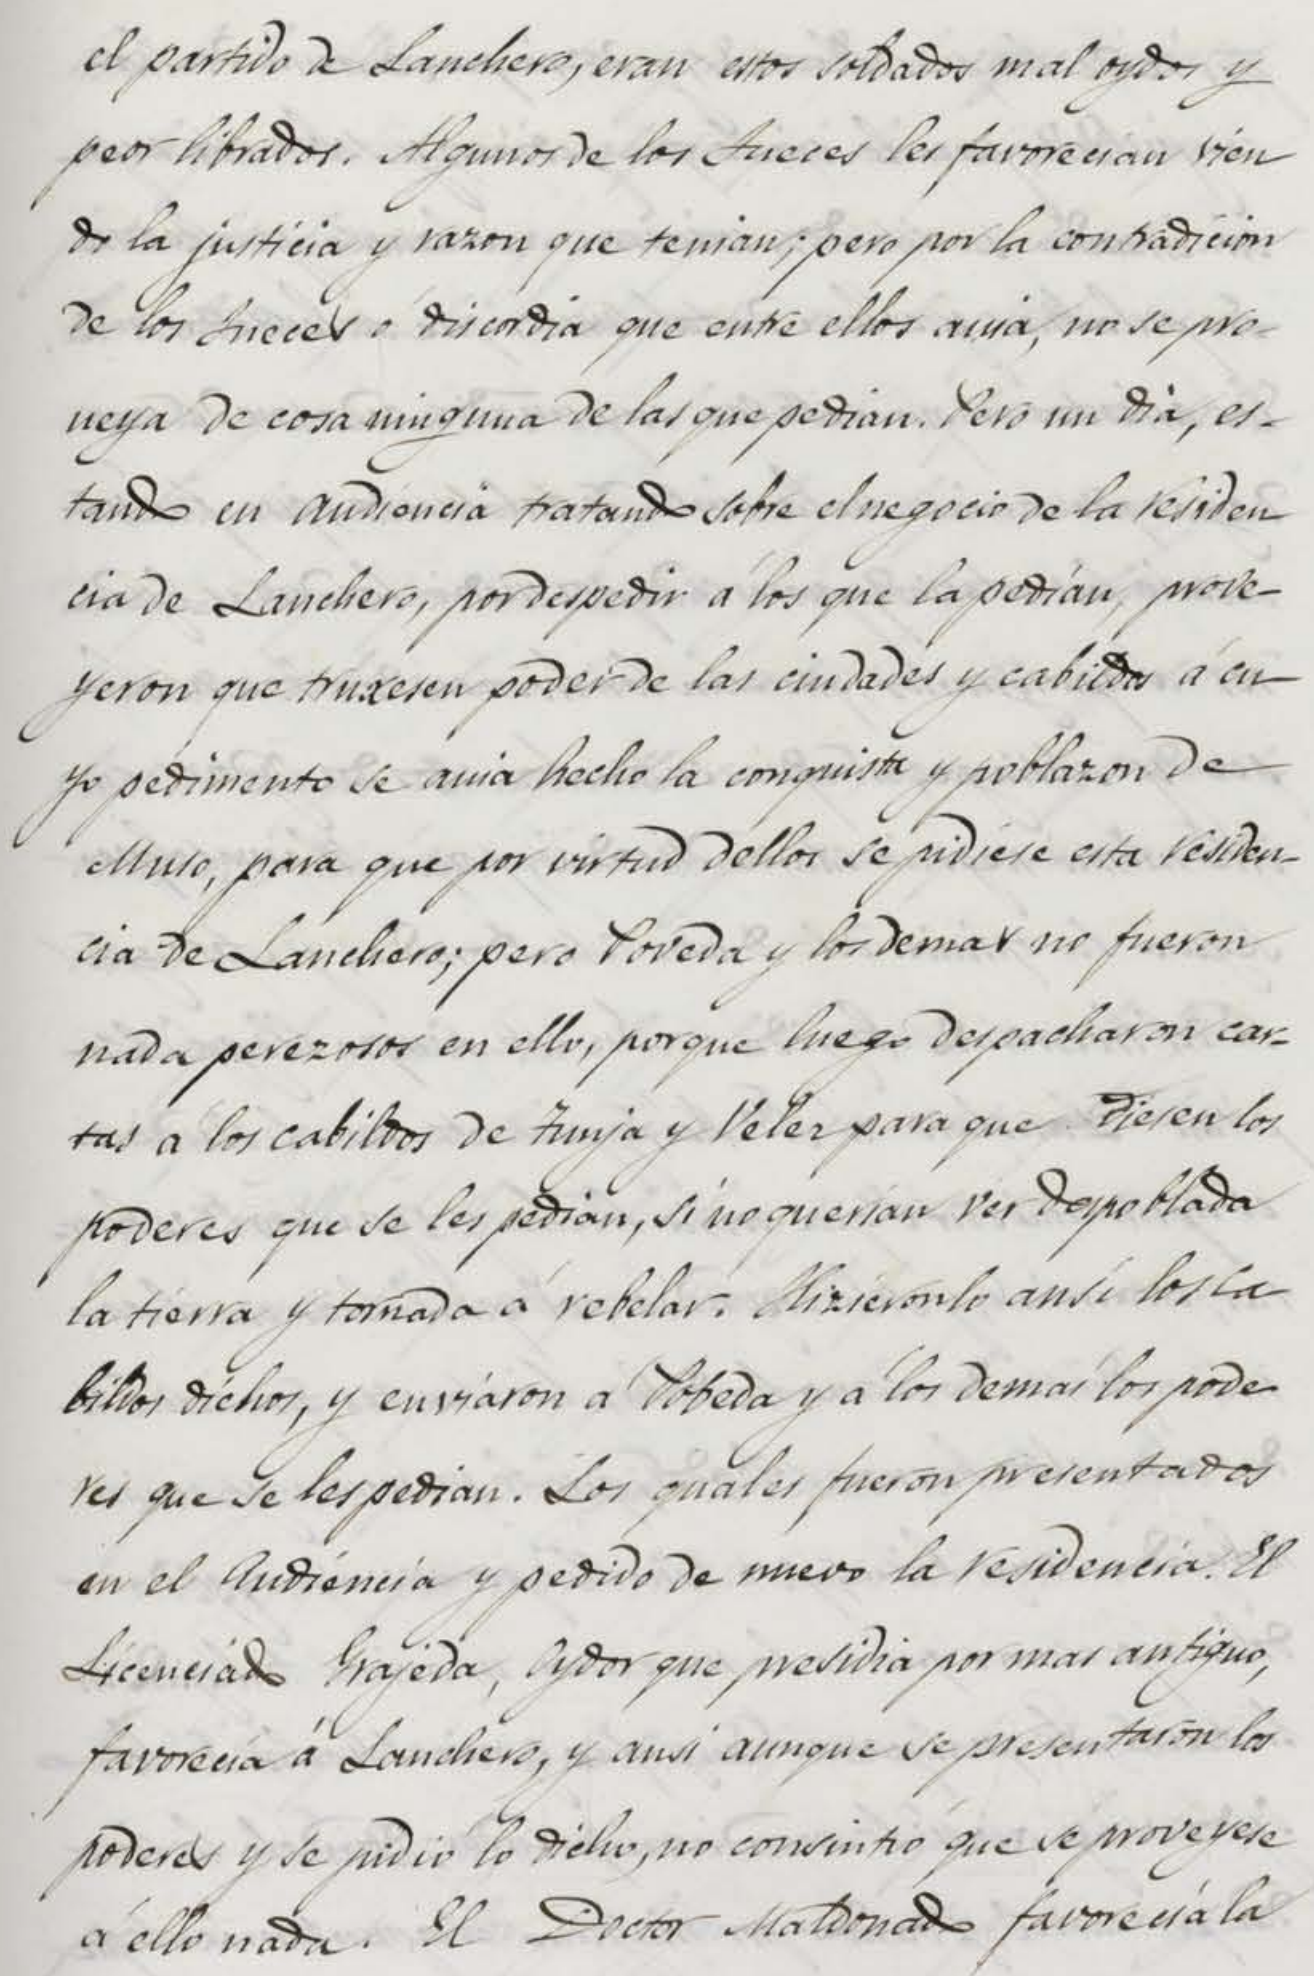 el partido de Lanchero, eran estos soldados mal oydos y
peor librados. Algunos de los Jueces les favorecian vien
do la justicia y razon que tenian; pero por la contradicion
de los Jueces o discordia que entre ellos auia, no se pro-
ueya de cosa ninguna de las que pedian. Pero un dia, es-
tando en Audiencia tratando sobre el negocio de la residen
cia de Lanchero, por despedir á los que la pedían, prove-
yeron que truxesen poder de las ciudades y cabildos á cu
yo pedimento se auia hecho la conquista y poblazon de
Muso, para que por virtud dellos se pidiese esta residen-
cia de Lanchero; pero Poveda y los demas no fueron
nada perezosos en ello, porque luego despacharon car-
tas á los cabildos de Tunja y Velez para que diesen los
poderes que se les pedian, si no querian ver despoblada
la tierra y tornada á rebelar. Hizieronlo ansi los Ca
bildos dichos, y enviaron á Pobeda y á los demas los pode
res que se les pedian. Los quales fueron presentados
en el Audiencia y pedido de nuevo la residencia. El
Licenciado Grajeda, Oydor que presidia por mas antiguo,
favorecia á Lanchero, y ansi aunque se presentaron los
poderes y se pidió lo dicho, no consintió que se proveyese
á ello nada. El Doctor Maldonado favorecía la